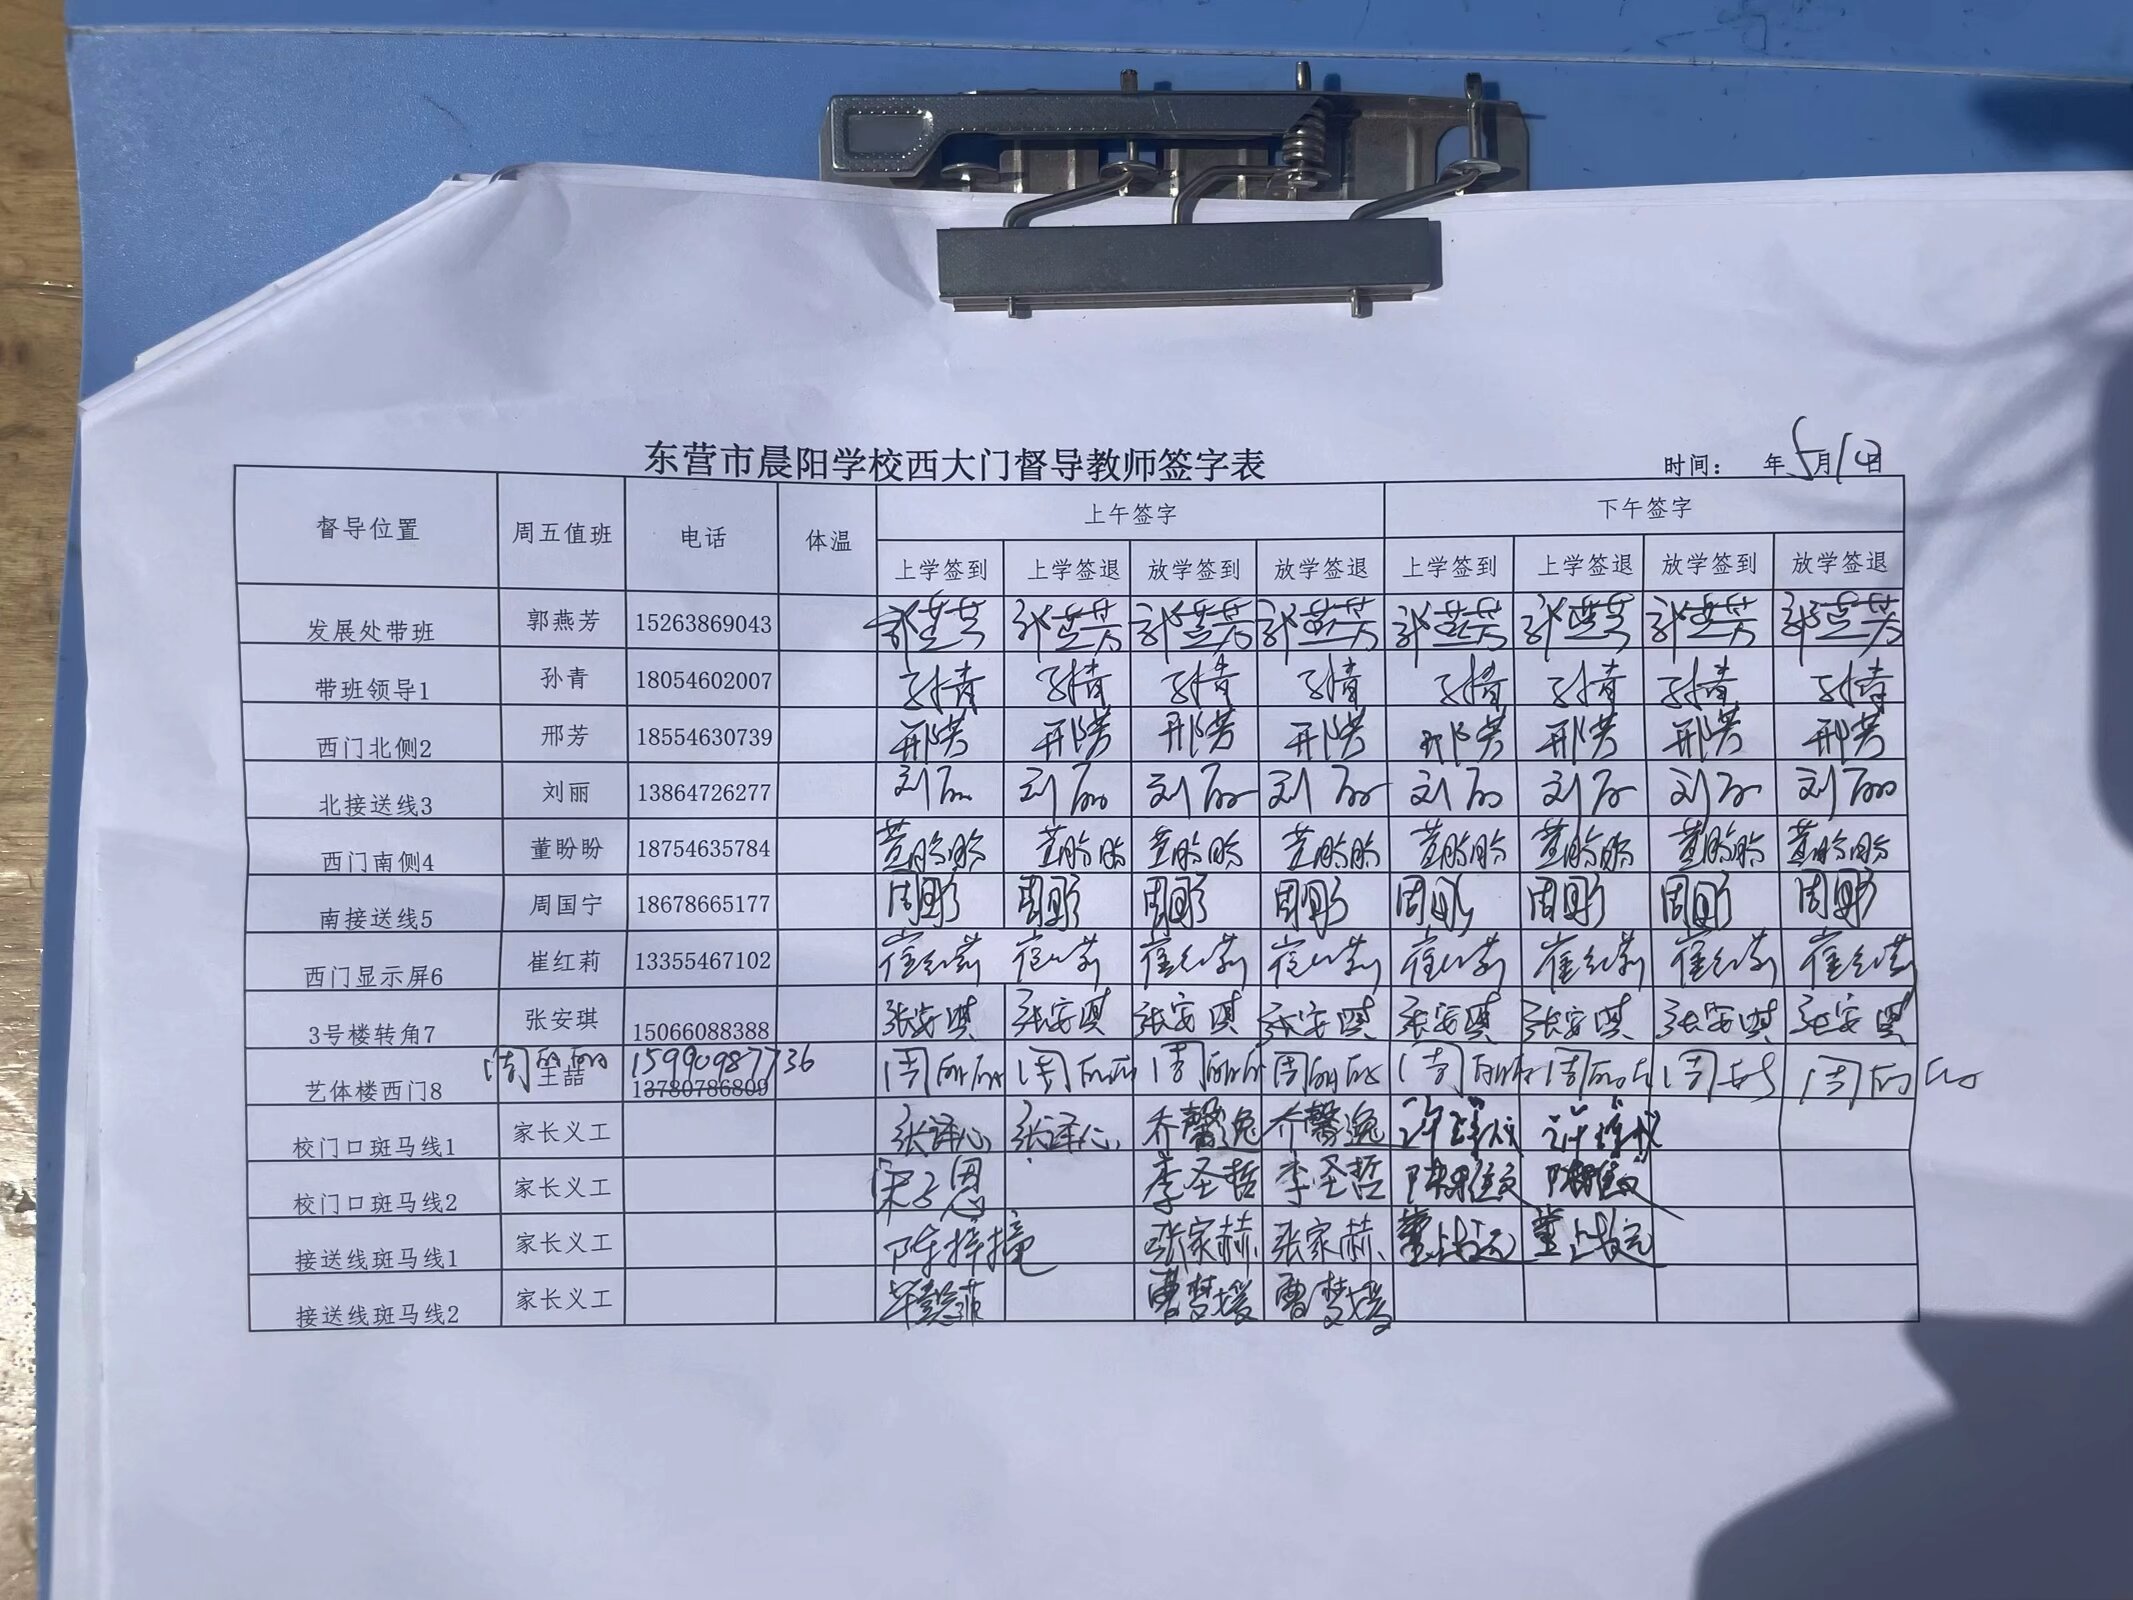 东营市晨阳学校西大门督导教师签字表
时间： 年5月10日
督导位置 周五值班 电话 体温 上午签字 下午签字
上学签到 上学签退 放学签到 放学签退 上学签到 上学签退 放学签到 放学签退
发展处带班 郭燕芳 15263869043 郭燕芳 郭燕芳 郭燕芳 郭燕芳 郭燕芳 郭燕芳 郭燕芳 郭燕芳
带班领导1 孙青 18054602007 孙倩 孙倩 孙倩 孙倩 孙倩 孙倩 孙倩 孙倩
西门北侧2 邢芳 18554630739 邢芳 邢芳 邢芳 邢芳 邢芳 邢芳 邢芳 邢芳
北接送线3 刘丽 13864726277 刘丽 刘丽 刘丽 刘丽 刘丽 刘丽 刘丽 刘丽
西门南侧4 董盼盼 18754635784 董盼盼 董盼盼 董盼盼 董盼盼 董盼盼 董盼盼 董盼盼 董盼盼
南接送线5 周国宁 18678665177
西门显示屏6 崔红莉 13355467102 崔红莉 崔红莉 崔红莉 崔红莉 崔红莉 崔红莉 崔红莉 崔红莉
3号楼转角7 张安琪 15066088388 张安琪 张安琪 张安琪 张安琪 张安琪 张安琪 张安琪 张安琪
周丽丽 15990987736
艺体楼西门8 王喆 13780786809 周丽丽 周丽丽 周丽丽 周丽丽 周丽丽 周丽丽 周丽丽
校门口斑马线1 家长义工 张译心 张译心 乔馨逸 乔馨逸
校门口斑马线2 家长义工 宋子恩 李圣哲 李圣哲
接送线斑马线1 家长义工 张家赫 张家赫
接送线斑马线2 家长义工 曹梦媛 曹梦媛